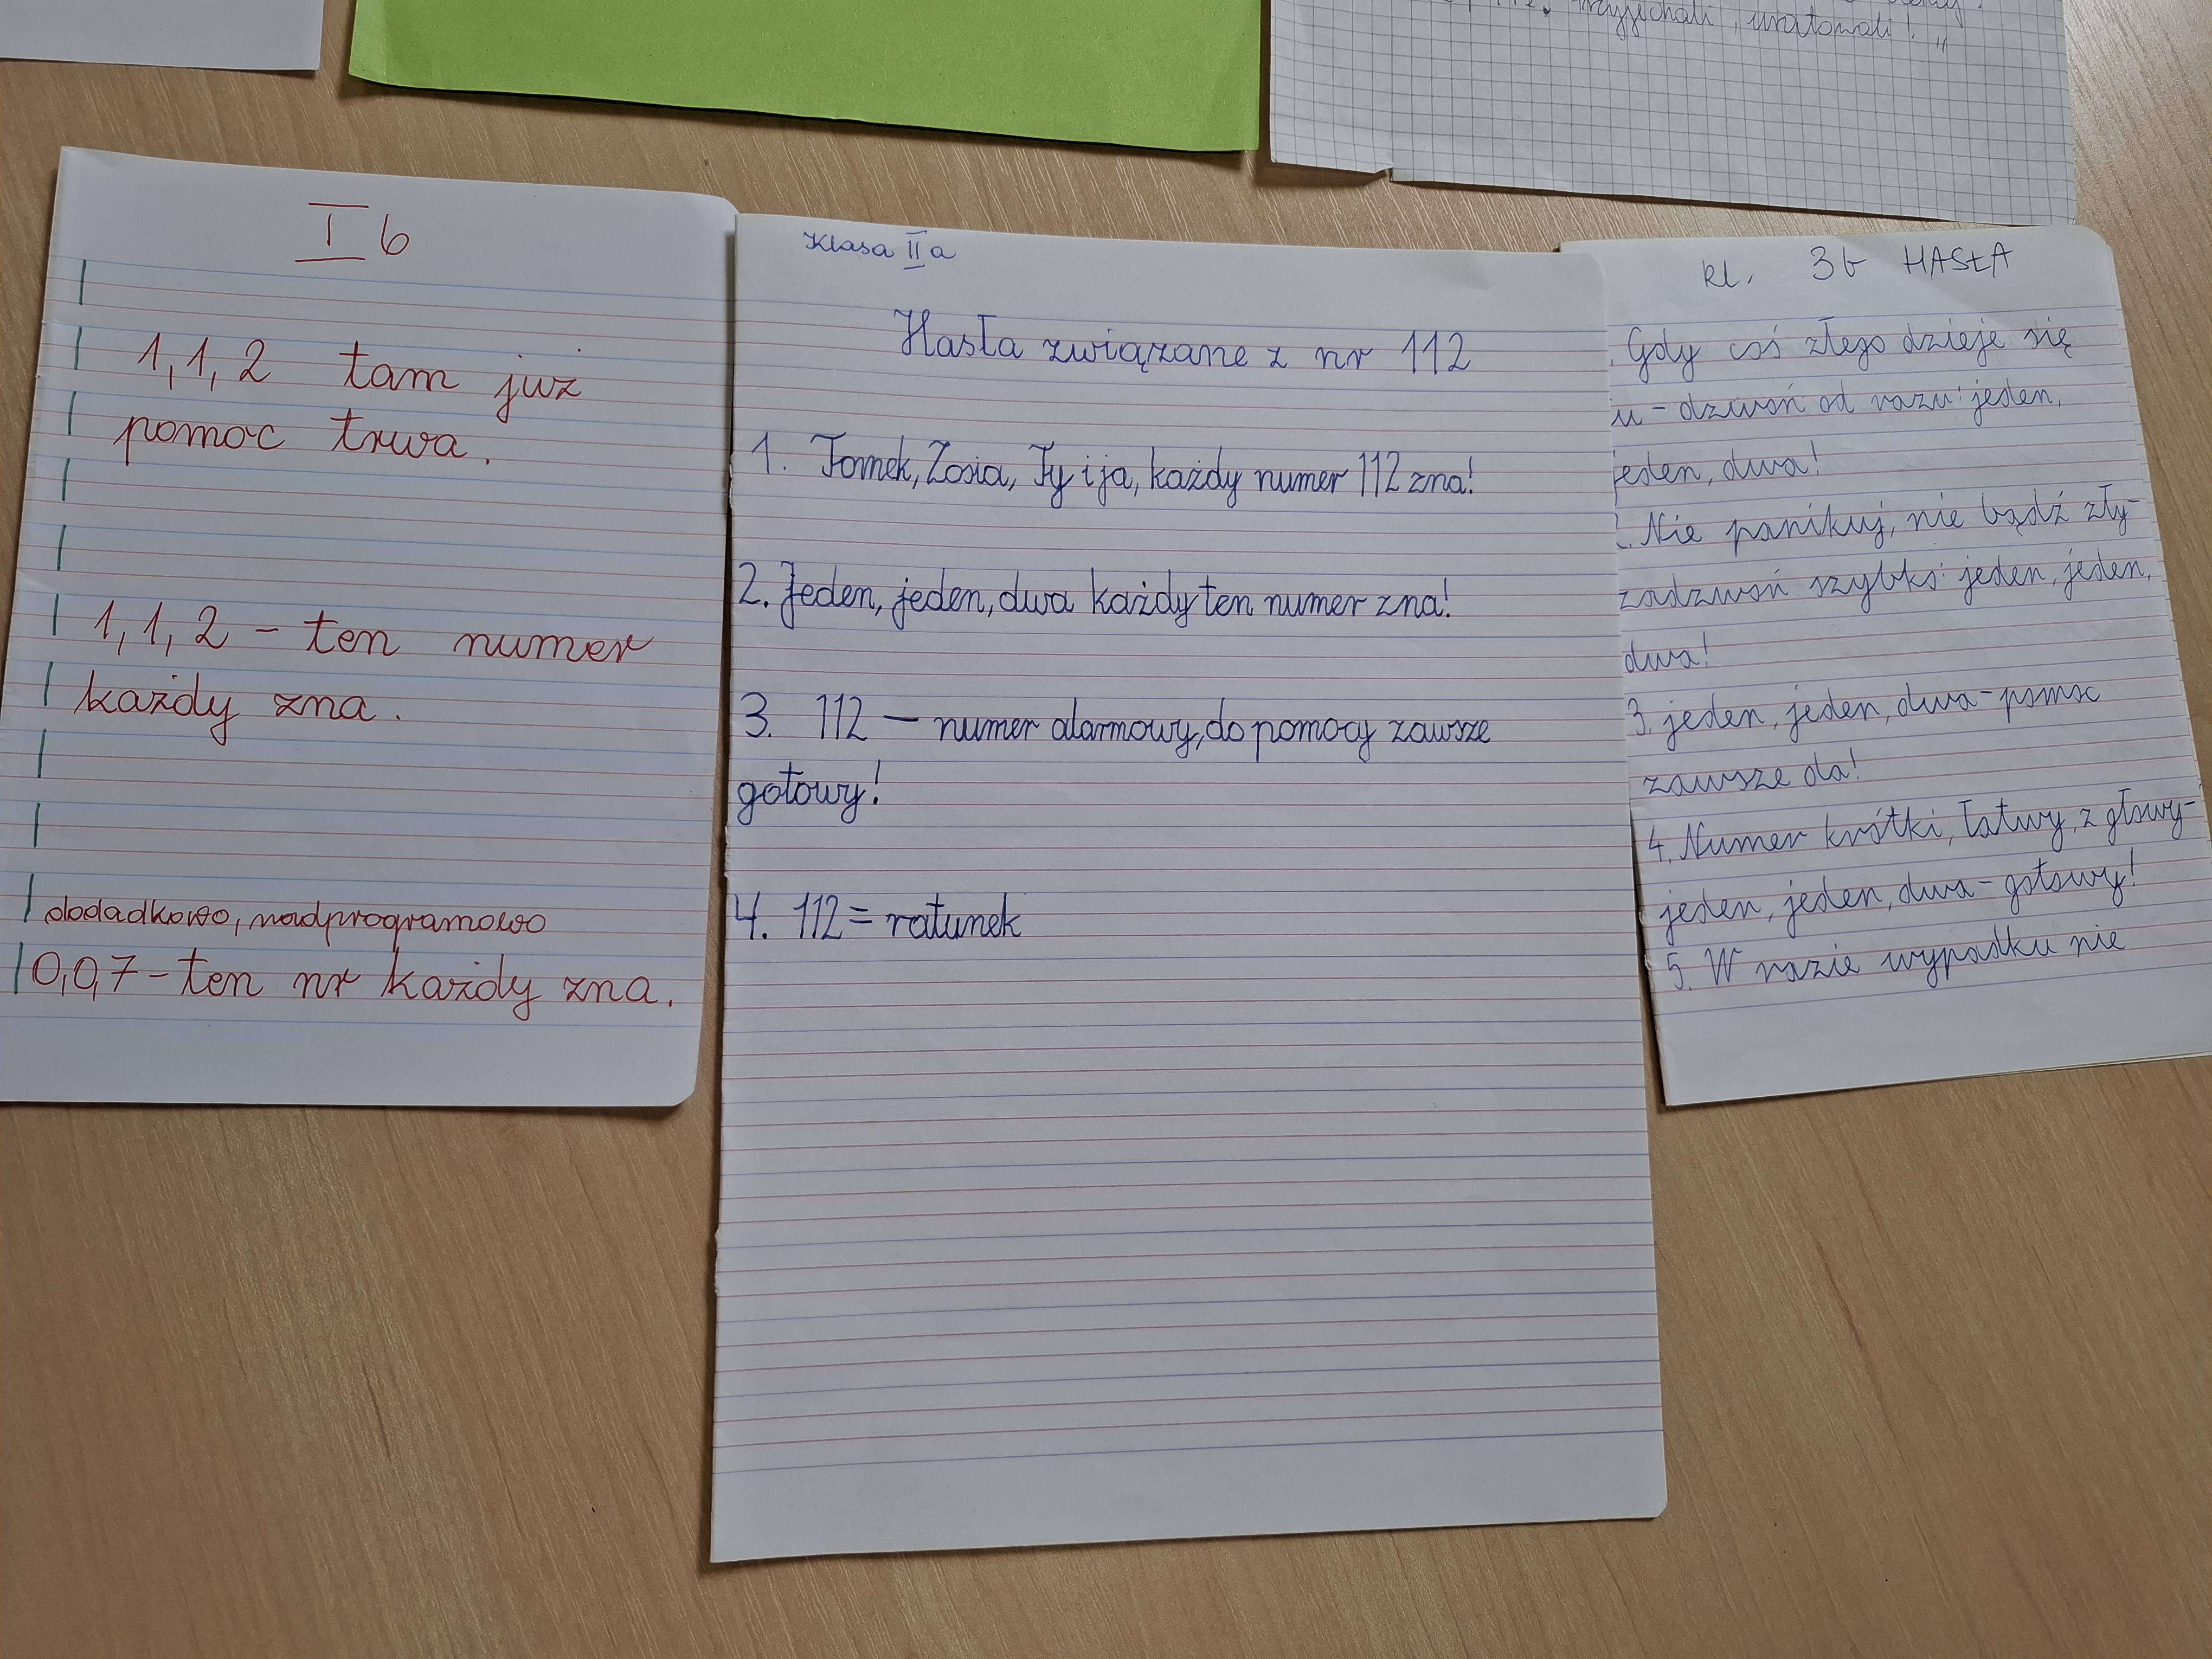 przyjechali, uratowali!"
I b
1,1,2 tam już
pomoc trwa.
1,1,2 - ten numer
każdy zna.
dodadkowo, nadprogramowo
0,0,7 - ten nr każdy zna.
Klasa II a
Hasła związane z nr 112
1. Tomek, Zosia, Ty i ja, każdy numer 112 zna!
2. Jeden, jeden, dwa każdy ten numer zna!
3. 112 - numer alarmowy, do pomocy zawsze
gotowy!
4. 112 = ratunek
kl. 3b HASŁA
Gdy coś złego dzieje się
- dzwoń od razu: jeden,
jeden, dwa!
Nie panikuj, nie bądź zły-
zadzwoń szybko: jeden, jeden,
dwa!
3. jeden, jeden, dwa - pomoc
zawsze da!
4. Numer krótki, łatwy, z głowy-
jeden, jeden, dwa - gotowy!
5. W razie wypadku nie